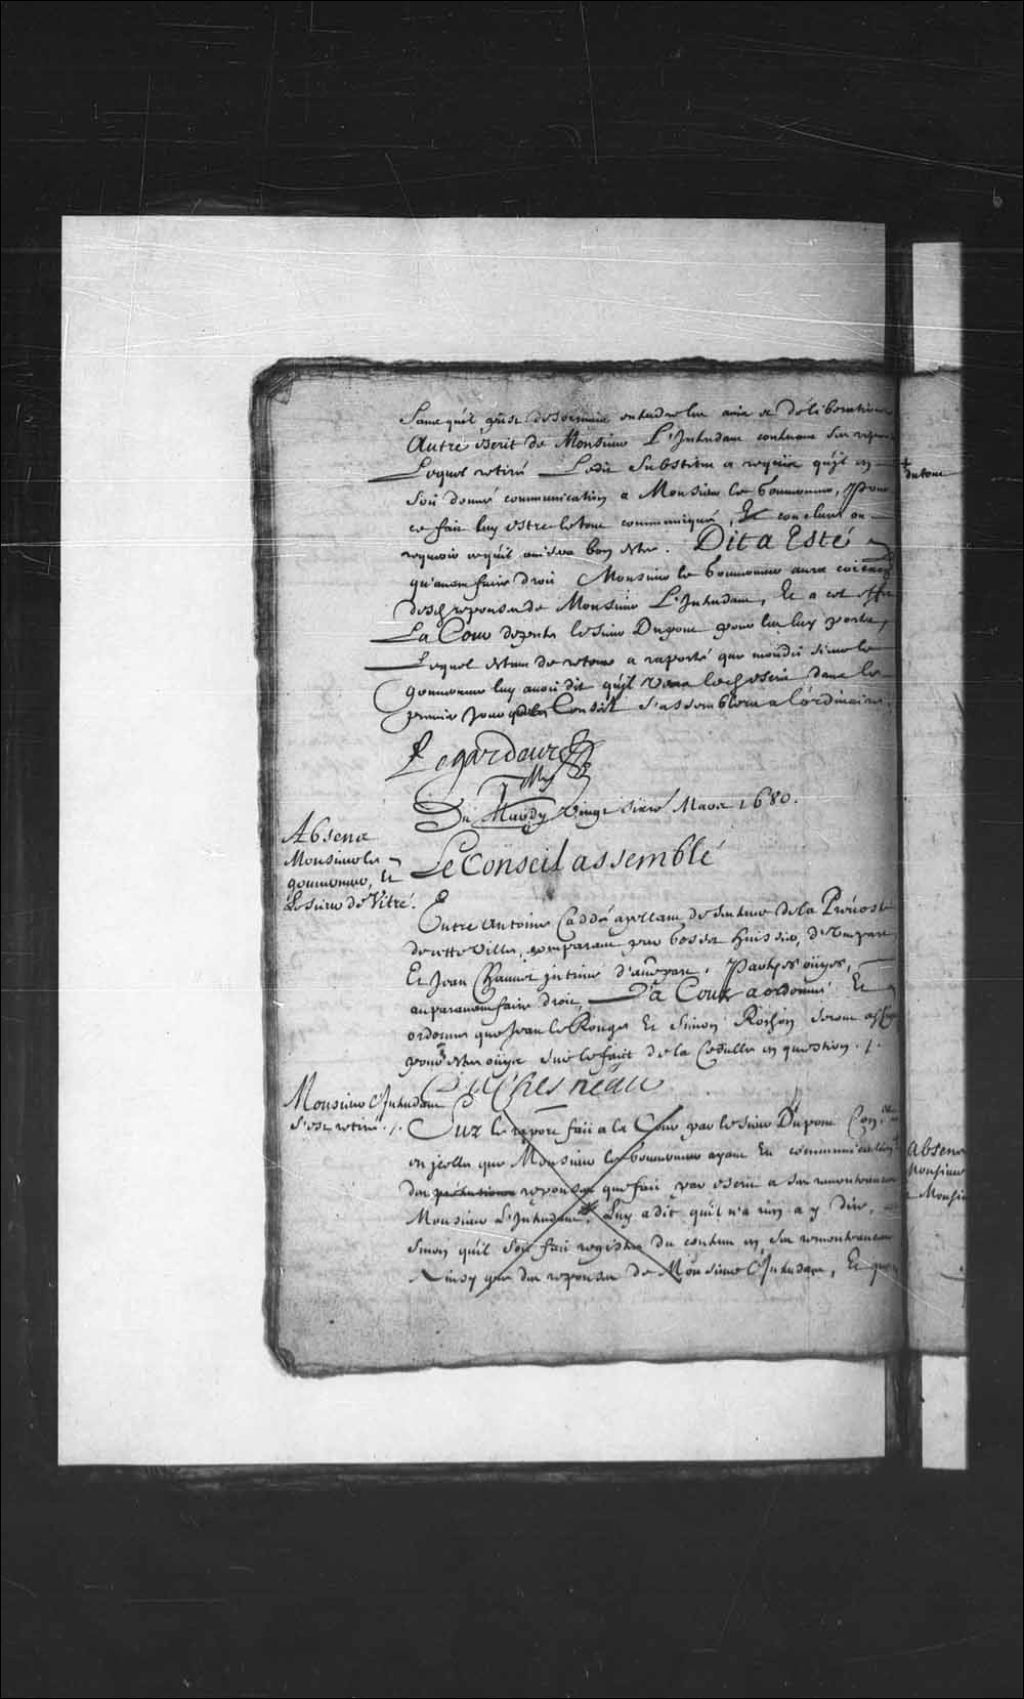 Sans qu'il puisse desormais entendre les avis et deliberations
Autre escrit de Monsieur L'Intendant contenant ses repon
Lequel retiré Ledit Substitut a requis qu'il en
Soit donné communication a Monsieur le Gouverneur, Pour
ce fait luy estre le tout communiqué, Et conclure ou
requerir ce qu'il avisera bon estre. Dit a Esté
qu'avant faire droit Monsieur le Gouverneur aura
desd reponses de Monsieur L'Intendant, Et a cet effet
La Cour deputé le sieur Dupont pour les luy porter,
Lequel estant de retour a raporté que mondit sieur le
gouverneur luy avoit dit qu'il lesd escrits dans le
premier Jour que le Conseil s'assemblera a l'ordinaire.
Legardeur
Du Mardy Vingt sixe Mars 1680.
Absent
Monsieur le
gouverneur, et
Le sieur de Vitré.
Le Conseil assemblé
Entre Antoine Caddé apellant de sentence de la Prévosté
de cette Ville, comparant par Gosset huissier, d'une part
Et Jean intimé d'autre part. Partyes oüyes,
auparavant faire droit, La Cour a ordonné Et
ordonne que Jean le Rouge Et Simon Rochon seront assig
pour estre oüys sur le fait de la Cedulle en question./.
DuChesneau
Monsieur l'Intendant
s'est retiré./.
Sur le raport fait a la Cour par le sieur Dupont Con.er
en jcelle que Monsieur le Gouverneur ayant Eu communication
des reponses que fait par escrit a ses remontrances
Monsieur L'Intendant, Luy a dit qu'il n'a rien a y dire,
Sinon qu'il soit fait registre du contenu en ses remontrances
Ainsy que des reponses de Monsieur l'Intendant, Et que
du tout
Absent
Monsieur
Monsie